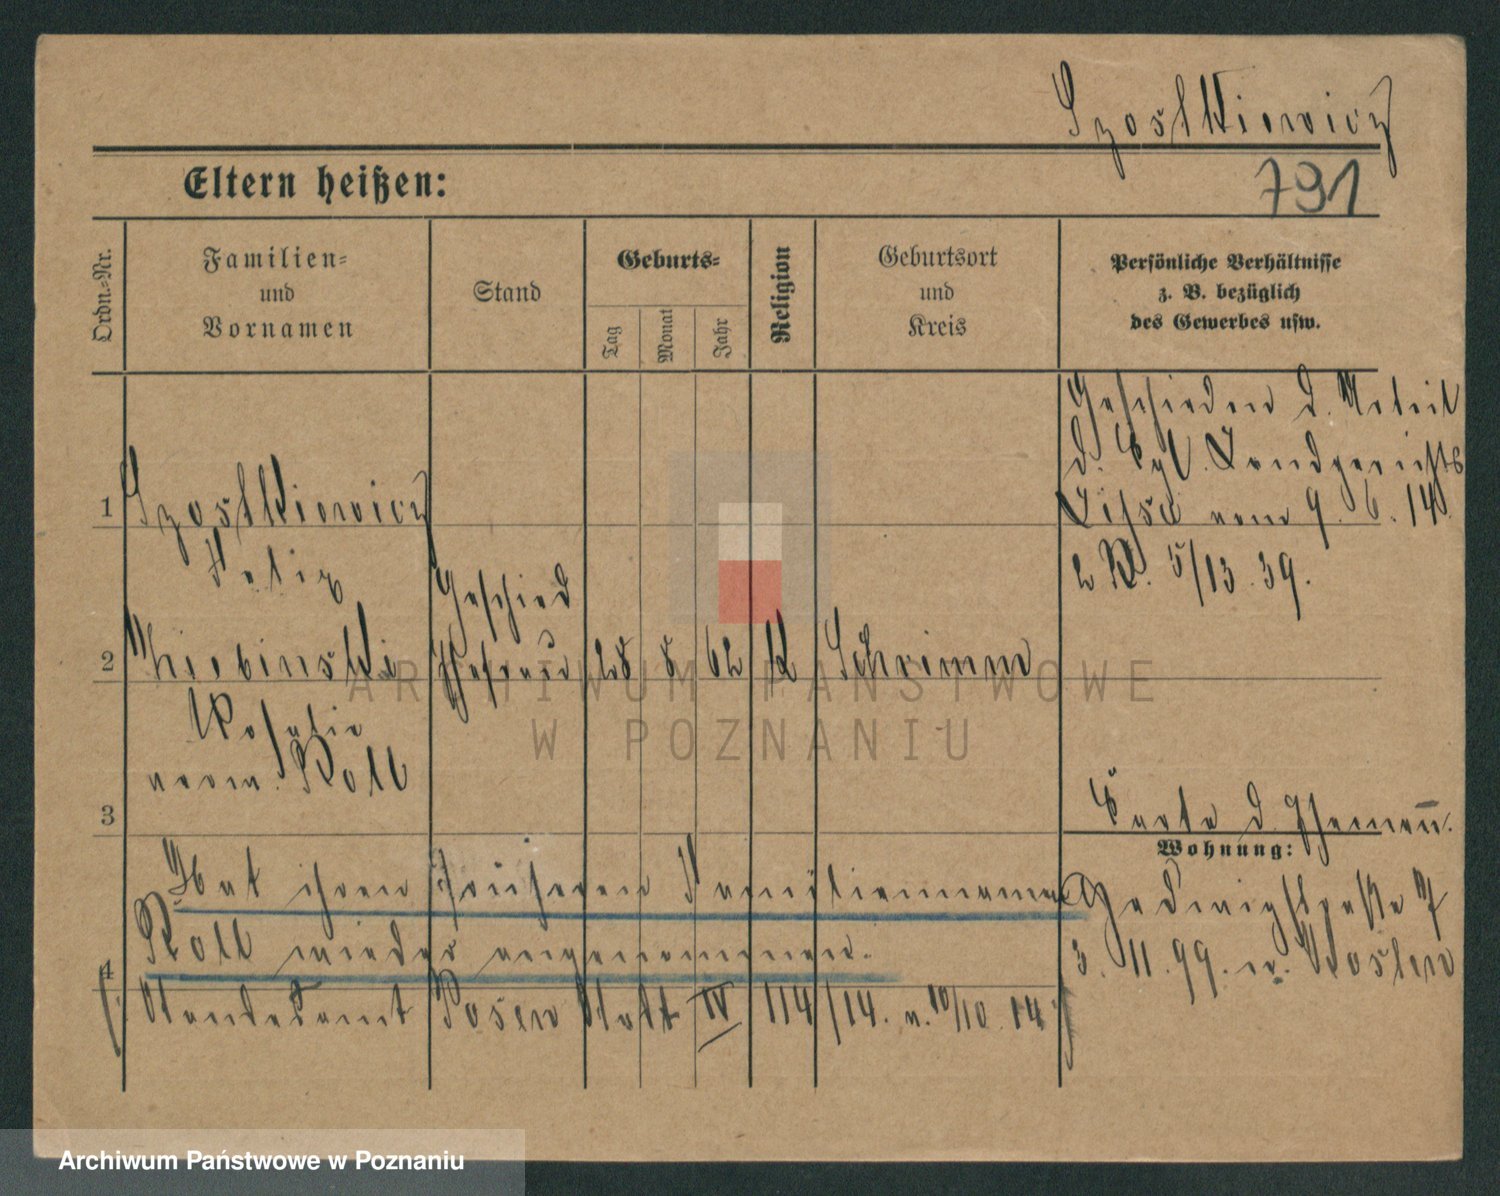 Szostkiewicz
Eltern heißen:
791
Ordn.-Nr.
Familien-
und
Vornamen
Stand
Geburts-
Tag
Monat
Jahr
Religion
Geburtsort
und
Kreis
Persönliche Verhältnisse
z. B. bezüglich
des Gewerbes usw.
Geschieden d. Urteil
d. Kgl. Landgerichts
Lissa vom 9. 6. 14.
2 R. 5/13. 39.
1
Szostkiewicz
Felix
Geschied
2
Ehefrau 28 8 62 K Schrimm
Rosalie
Roll
3
Karte d. Ehemann.
Wohnung:
Hat ihren früheren Familiennamen
Roll wieder angenommen.
4
Standesamt Posen IV 114/14. v. 10/10. 14
3. 11. 99. n.
ARCHIWUM PAŃSTWOWE
W POZNANIU
Archiwum Państwowe w Poznaniu